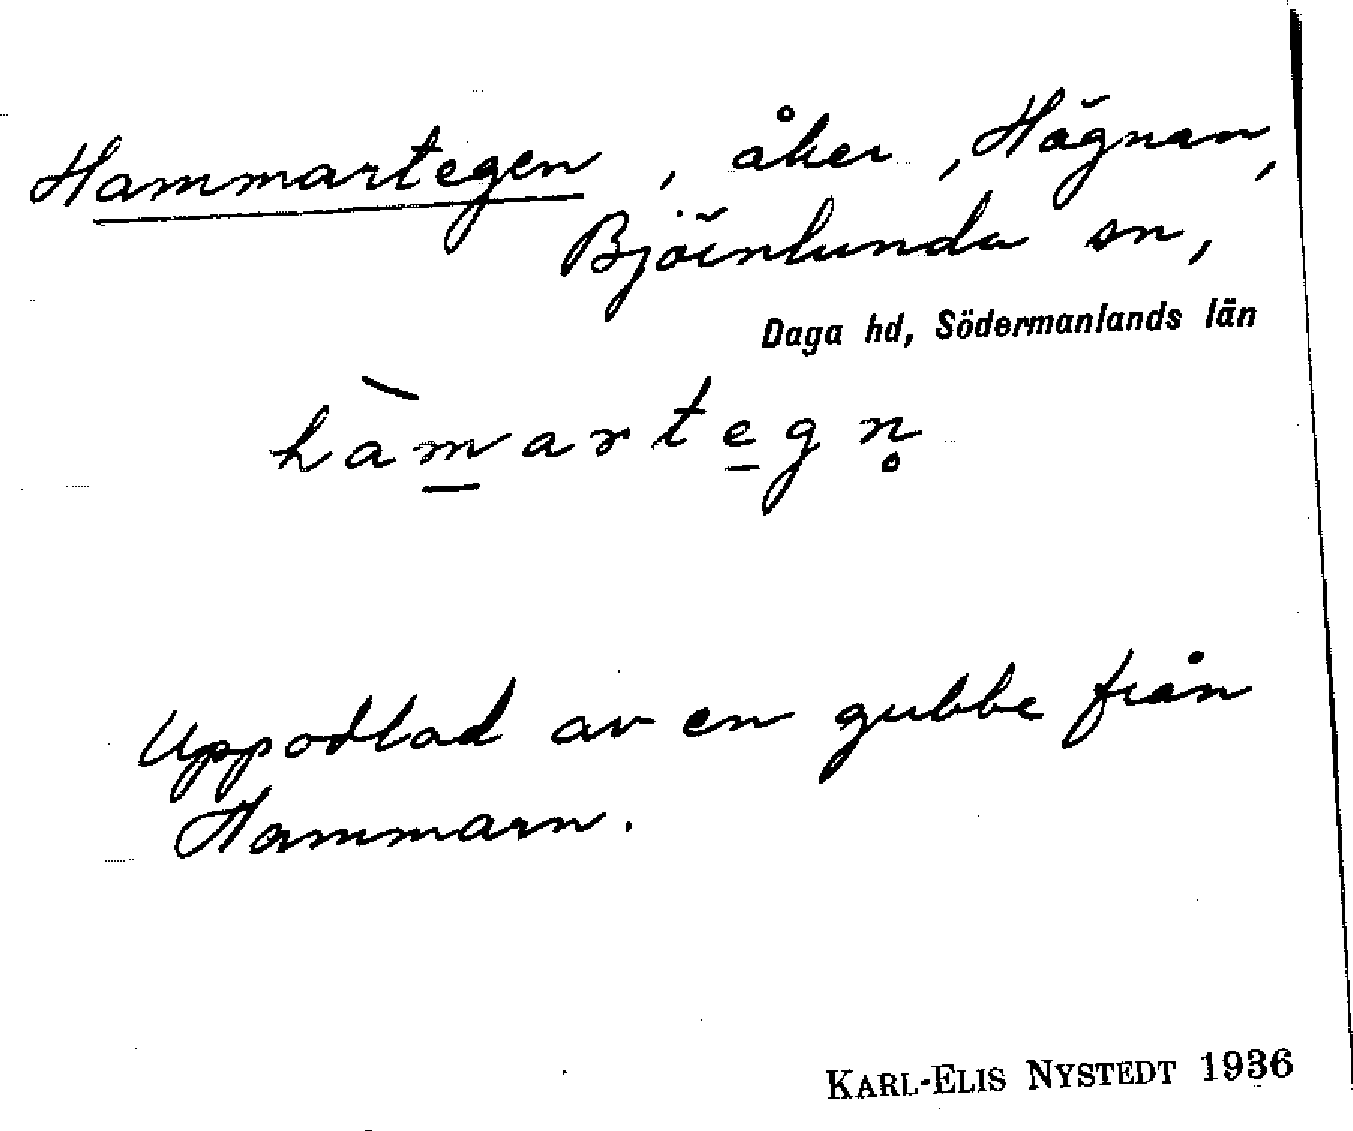 Hammartegen, åker, Hägnan,
Björnlunda sn,
Daga hd, Södermanlands län
hàm̲arte̲gn̥
Uppodlad av en gubbe från
Hammarn.
KARL-ELIS NYSTEDT 1936